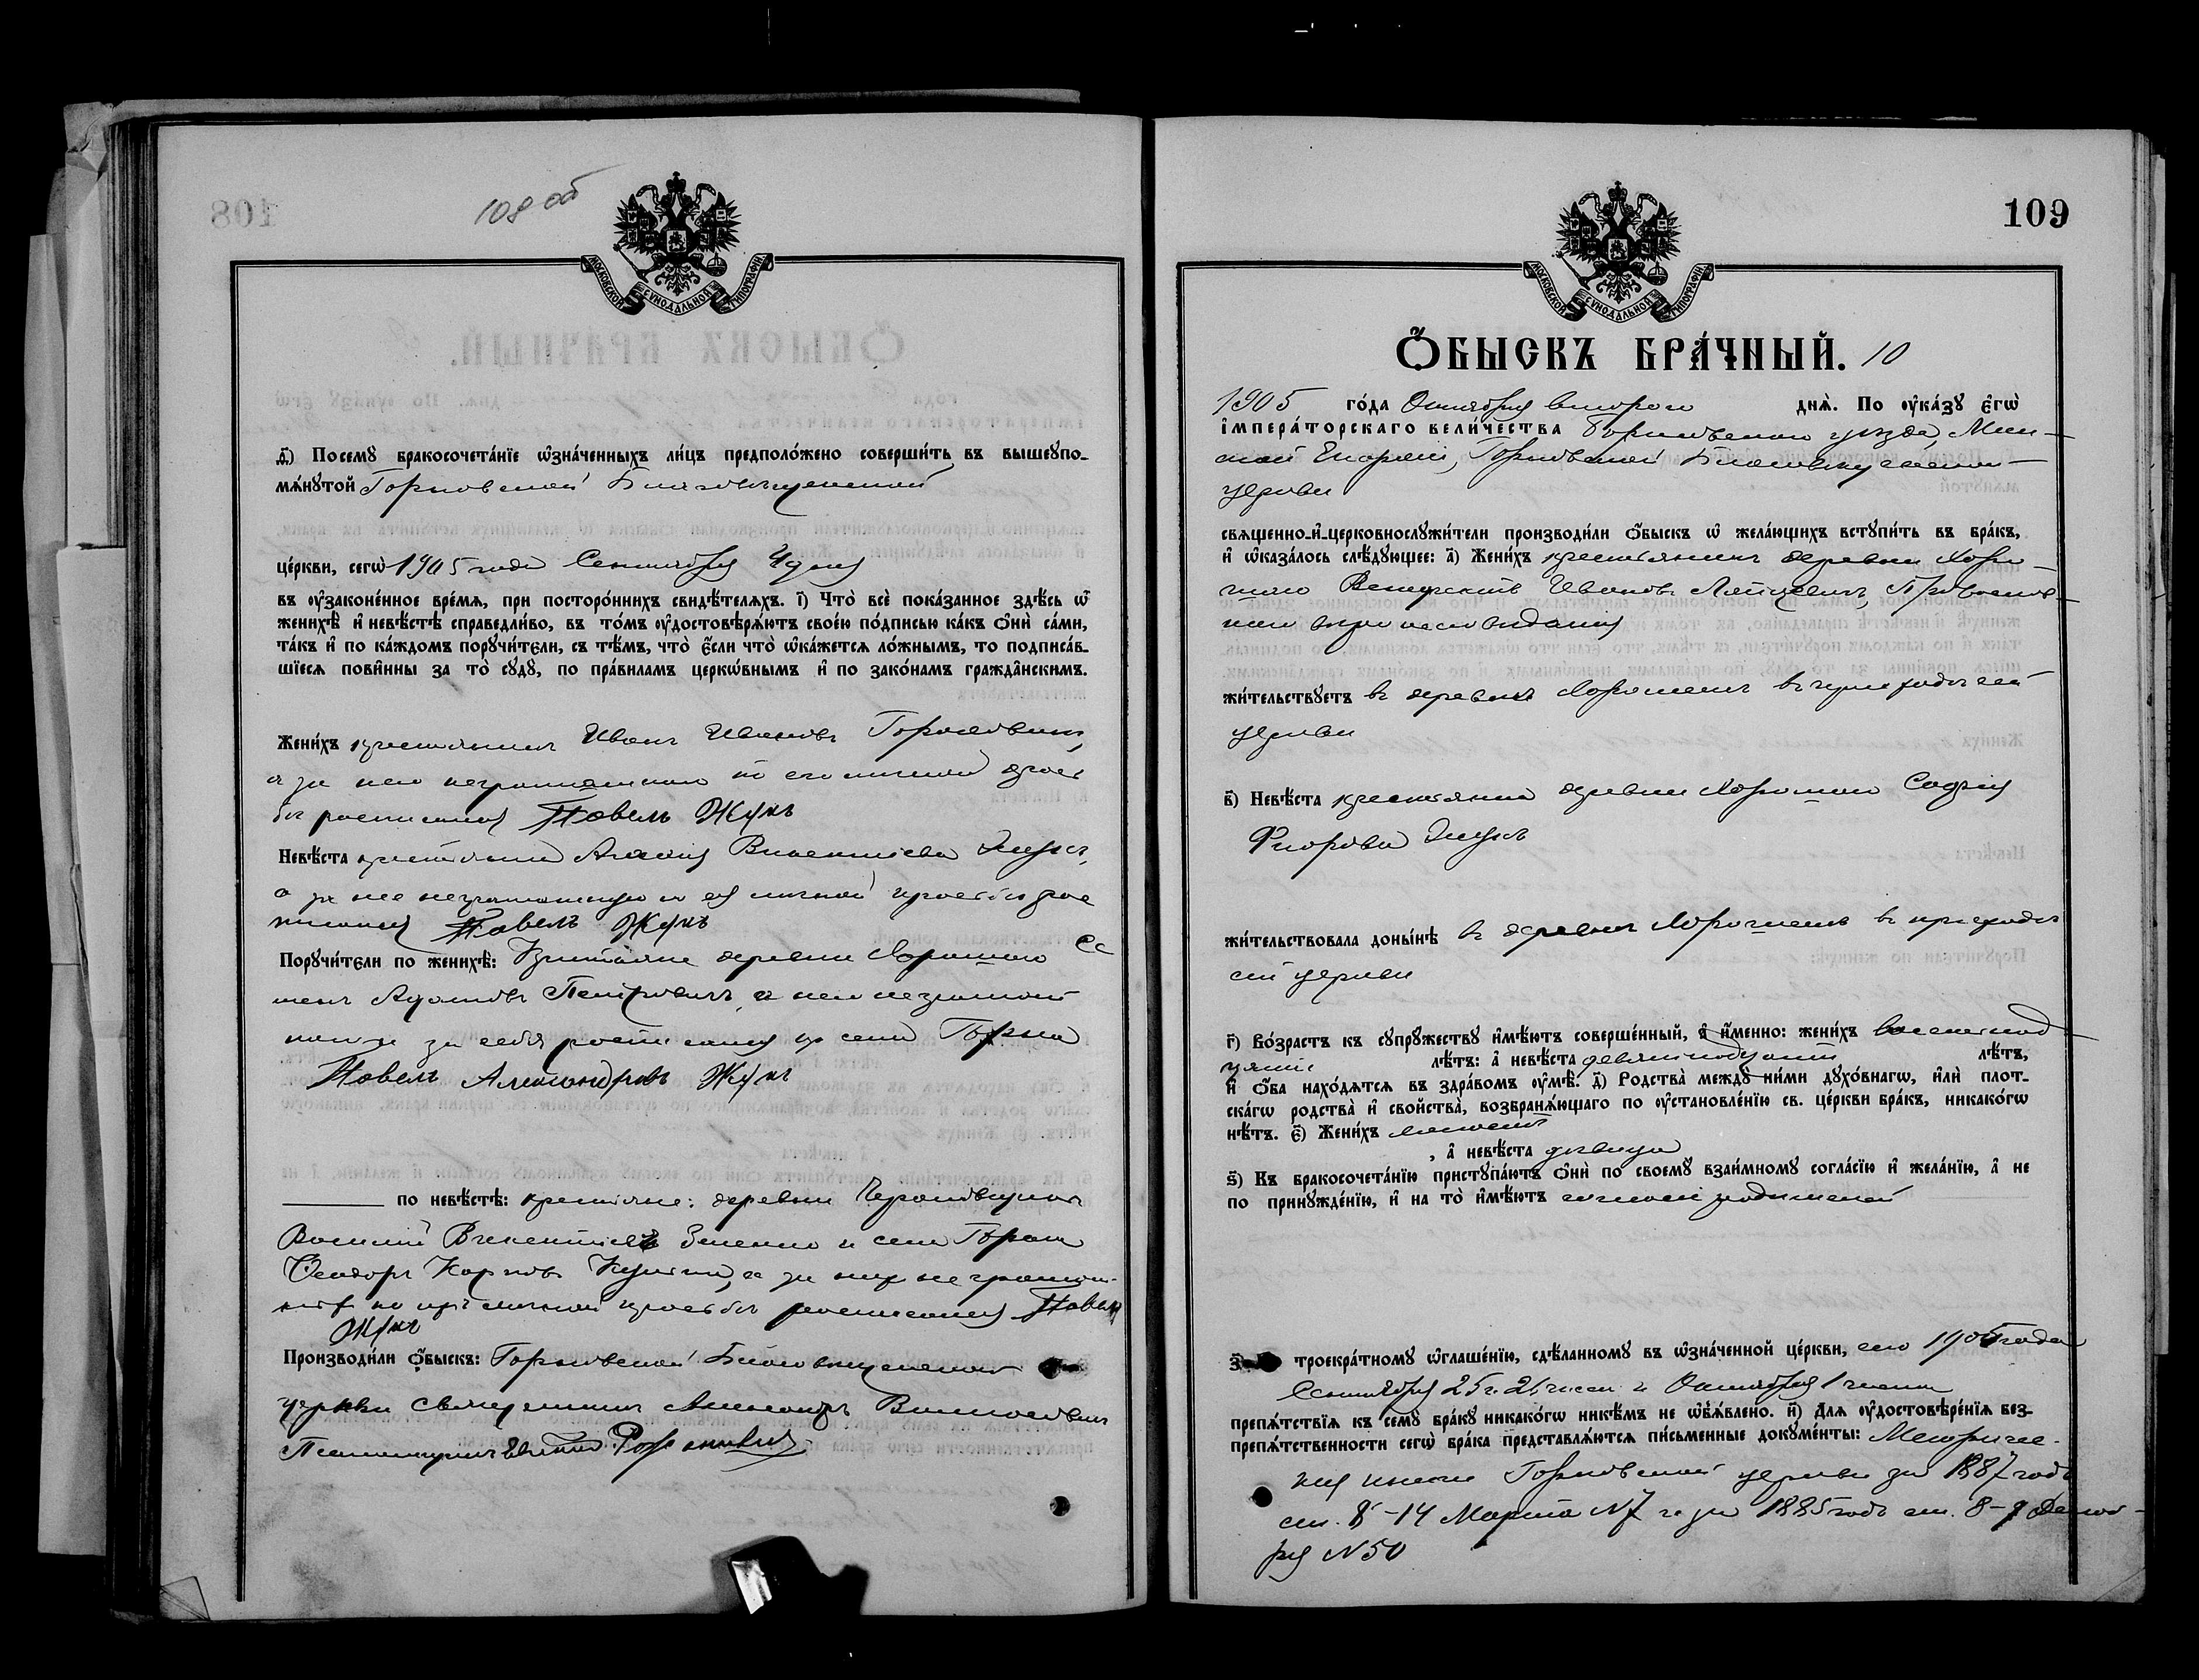 108
108 об
МОСКОВСКОЙ СѴНОДАЛЬНОЙ ТИПОГРАФІИ
ѳ҃) Посемꙋ̀ бракосочета́нїе ѡ҆зна́ченныхъ ли́цъ предполо́жено соверши́ть въ вышеꙋпо-
мѧ́нꙋтой Горновской Благовѣщенской
це́ркви, сегѡ̀ 1905 года Сентября 4 дня
въ ᲂу҆законе́нное вре́мѧ, при посторо́ннихъ свидѣ́телѧхъ. і҃) Что̀ всѐ пока́занное здѣ́сь ѡ҆
женихѣ̀ и҆ невѣ́стѣ справедли́во, въ то́мъ ᲂу҆достовѣрѧ́ютъ свое́ю по́дписью ка́къ ѻ҆нѝ са́ми,
та́къ и҆ по ка́ждомъ порꙋчи́тели, съ тѣ́мъ, что̀ є҆́сли что̀ ѡ҆ка́жетсѧ ло́жнымъ, то подписа́в-
шїесѧ пови́нны за то̀ сꙋдꙋ̀, по пра́виламъ церкѡ́внымъ и҆ по зако́намъ гражда̂нскимъ.
Жени́хъ крестьянинъ Иванъ Ивановъ
а за него неграмотнаго по его личной прось
бѣ росписался Павелъ Жукъ
Невѣ́ста крестьянка Викентіева
а за нее неграмотную по ея личной просьбѣ рос
писался Павелъ Жукъ
Порꙋчи́тели по женихѣ̀: Крестьяне деревни Хорошаго Се
менъ Адамовъ Петровичъ, а
за себя росписался и села Горна
Павелъ Александровъ Жукъ
по невѣ́стѣ: крестьяне: деревни
Василій Викентіевъ и села Горна
Ѳеодоръ Карповъ а за нихъ неграмот-
ныхъ по ихъ личной просьбѣ росписался Павелъ
Жукъ
Производи́ли ѻ҆́быскъ: Горновской Благовѣщенской
церкви Священникъ Александръ
Псаломщикъ
109
МОСКОВСКОЙ СѴНОДАЛЬНОЙ ТИПОГРАФІИ
Ѻ҆́БЫСКЪ БРА́ЧНЫЙ. 10
1905 го́да Октября второго днѧ̀. По ᲂу҆ка́зꙋ є҆гѡ̀
і҆мпера́торскаго вели́чества Борисовскаго уѣзда, Мин-
ской Епархіи, Горновской Благовѣщенской
церкви
свѧщенно-и҆-церковнослꙋжи́тели производи́ли ѻ҆́быскъ ѡ҆ жела́ющихъ встꙋпи́ть въ бра́къ,
и҆ ѡ҆каза́лось слѣ́дꙋющее: а҃) Жени́хъ крестьянинъ деревни Хоро-
шаго Ивановъ Православ-
наго вѣроисповѣданія
жи́тельствꙋетъ въ деревнѣ Хорошемъ въ приходѣ сей
церкви
в҃) Невѣ́ста крестьянка деревни Хорошаго Софія
Флорова Жукъ
жи́тельствовала доны́нѣ въ деревнѣ Хорошемъ въ приходѣ
сей церкви
г҃) Во́зрастъ къ сꙋпрꙋжествꙋ и҆мѣ́ютъ соверше́нный, и҆ и҆́менно: жени́хъ восемнад-
цати лѣ́тъ: а҆ невѣ́ста девятнадцати лѣ́тъ,
и҆ ѻ҆́ба нахо́дѧтсѧ въ здра́вомъ ᲂу҆мѣ̀. д҃) Родства̀ междꙋ̀ ни́ми дꙋхо́внагѡ, и҆лѝ плот-
ска́гѡ родства̀ и҆ свойства̀, возбранѧ́ющаго по ᲂу҆становле́нїю св. це́ркви бра́къ, никако́гѡ
нѣ́тъ. є҃) Жени́хъ холостъ
, а҆ невѣ́ста дѣвица
ѕ҃) Къ бракосочета́нїю пристꙋпа́ютъ ѻ҆нѝ по своемꙋ̀ взаи́мномꙋ согла́сїю и҆ жела́нїю, а҆ не
по принꙋжде́нїю, и҆ на то̀ и҆мѣ́ютъ согласіе родителей
троекра́тномꙋ ѡ҆глаше́нїю, сдѣ́ланномꙋ въ ѡ҆зна́ченной це́ркви, сего 1905 года
Сентября 25 ч. 26 числа и Октября 1 числа
препѧ́тствїѧ къ семꙋ̀ бра́кꙋ никако́гѡ никѣ́мъ не ѡ҆б̾ѧ́влено. и҃) Длѧ ᲂу҆достовѣре́нїѧ без-
препѧ́тственности сегѡ̀ бра́ка представлѧ́ютсѧ пи́сьменные докꙋме́нты: Метричес-
кія книги Горновской церкви за 1887 годъ
ст. 8-14 Марта N7 и за 1885 годъ ст. 8-9 Декаб-
ря N50